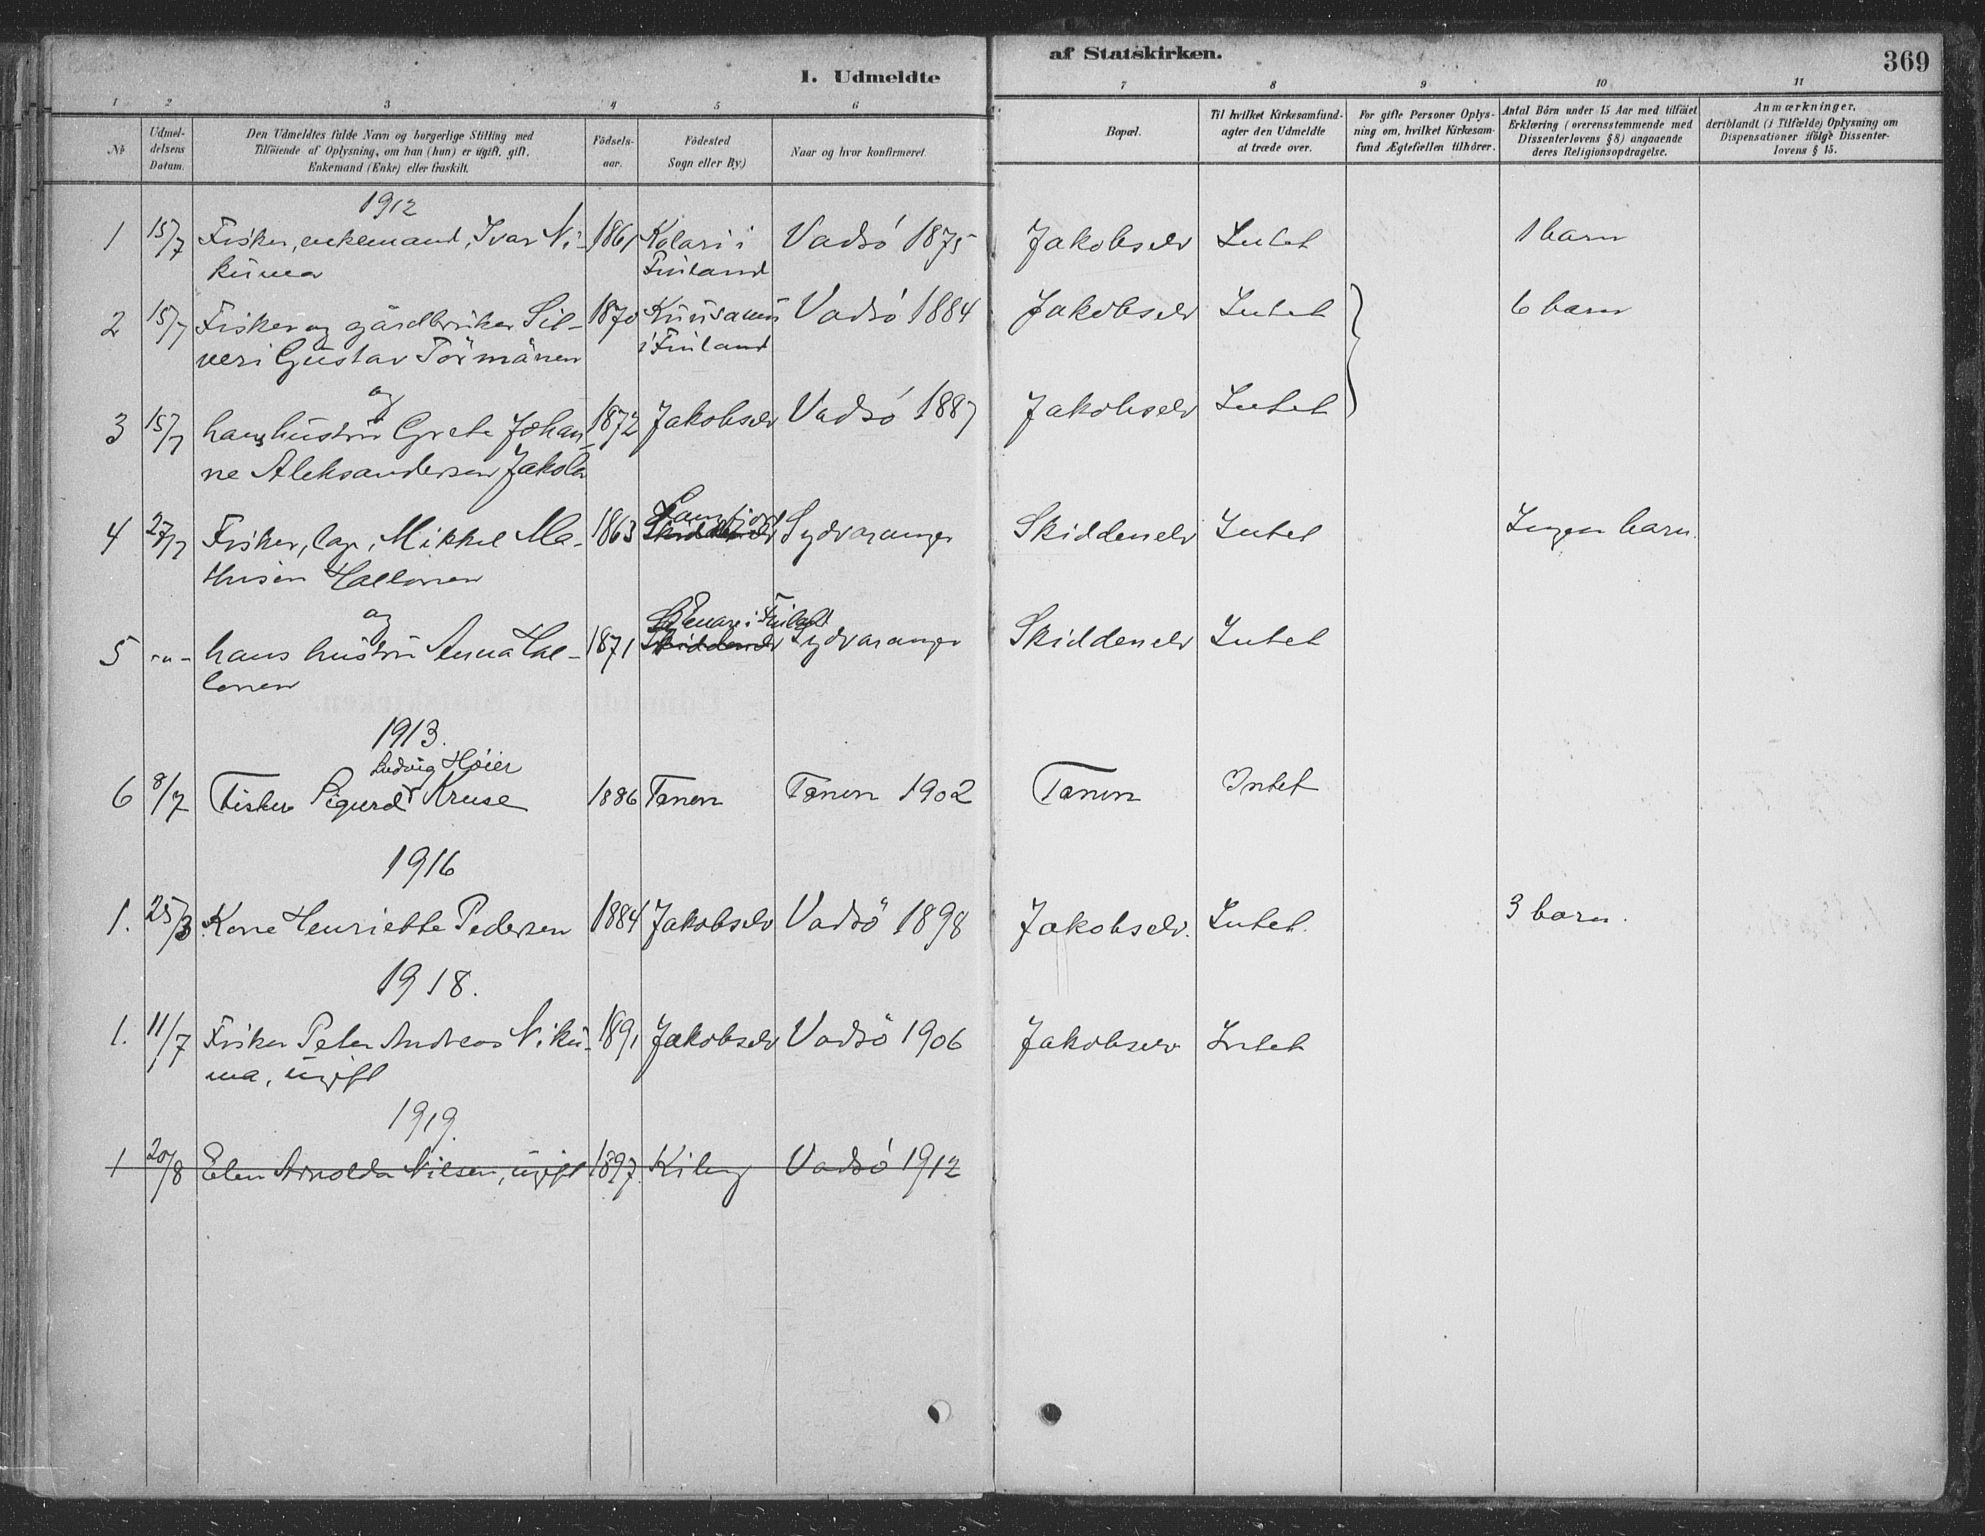 I. Udmeldte
af Statskirken.
369
1 2 3 4 5 6 7 8 9 10 11
No
Udmel-
delsens
Datum.
Den Udmeldtes fulde Navn og borgerlige Stilling med
Tilföiende af Oplysning, om han (hun) er ugift, gift,
Enkemand (Enke) eller fraskilt.
Födsels-
aar.
Födested
Sogn eller By.)
Naar og hvor konfirmeret
Bopæl.
Til hvilket Kirkesamfund-
agter den Udmeldte
at træde over.
For gifte Personer Oplys-
ning om, hvilket Kirkesam-
fund Ægtefællen tilhörer.
Antal Börn under 15 Aar med tilföiet
Erklæring (overensstemmende med
Dissenterlovens § 8) angaaende
deres Religionsopdragelse.
Anmærkninger,
deriblandt (i Tilfælde) Oplysning om
Dispensationer ifölge Dissenter-
lovens § 15.
1912
1 15/7 Fisker, enkemand, Ivar Ni- 1861 Kolari i Vadsö 1875 Jakobselv Intet 1 barn
kuma Finland
2 15/7 Fisker og gårdbruker Sil- 1870 Kuusamu Vadsö 1884 Jakobselv Intet 6 barn
veri Gustav Törmänen i Finland
og
3 15/7 hans hustru Grete Johan- 1872 Jakobselv Vadsö 1887 Jakobselv Intet
ne Aleksandersen Jakola
4 27/7 Fisker, Mikkel Ma- 1863 Skiddenelv Sydvaranger Skiddenelv Intet Ingen barn.
thisen Hallonen
og
Enare i Finland
5 -"- hans hustru Anna Hal- 1871 Skiddenelv Sydvaranger Skiddenelv Intet
lonen
1913.
Ludvig Höier
6 8/7 Fisker Sigurd Kruse 1886 Tanen Tanen 1902 Tanen Intet
1916
1. 25/3 Kone Henriette Pedersen 1884 Jakobselv Vadsö 1898 Jakobselv. Intet. 3 barn.
1918.
1. 11/7 Fisker Peter Andreas Niku- 1891 Jakobselv Vadsö 1906 Jakobselv Intet
ma, ugift
1919.
1 20/8 Elen Arnolda Nilsen, ugift 1897. Kiberg Vadsö 1912